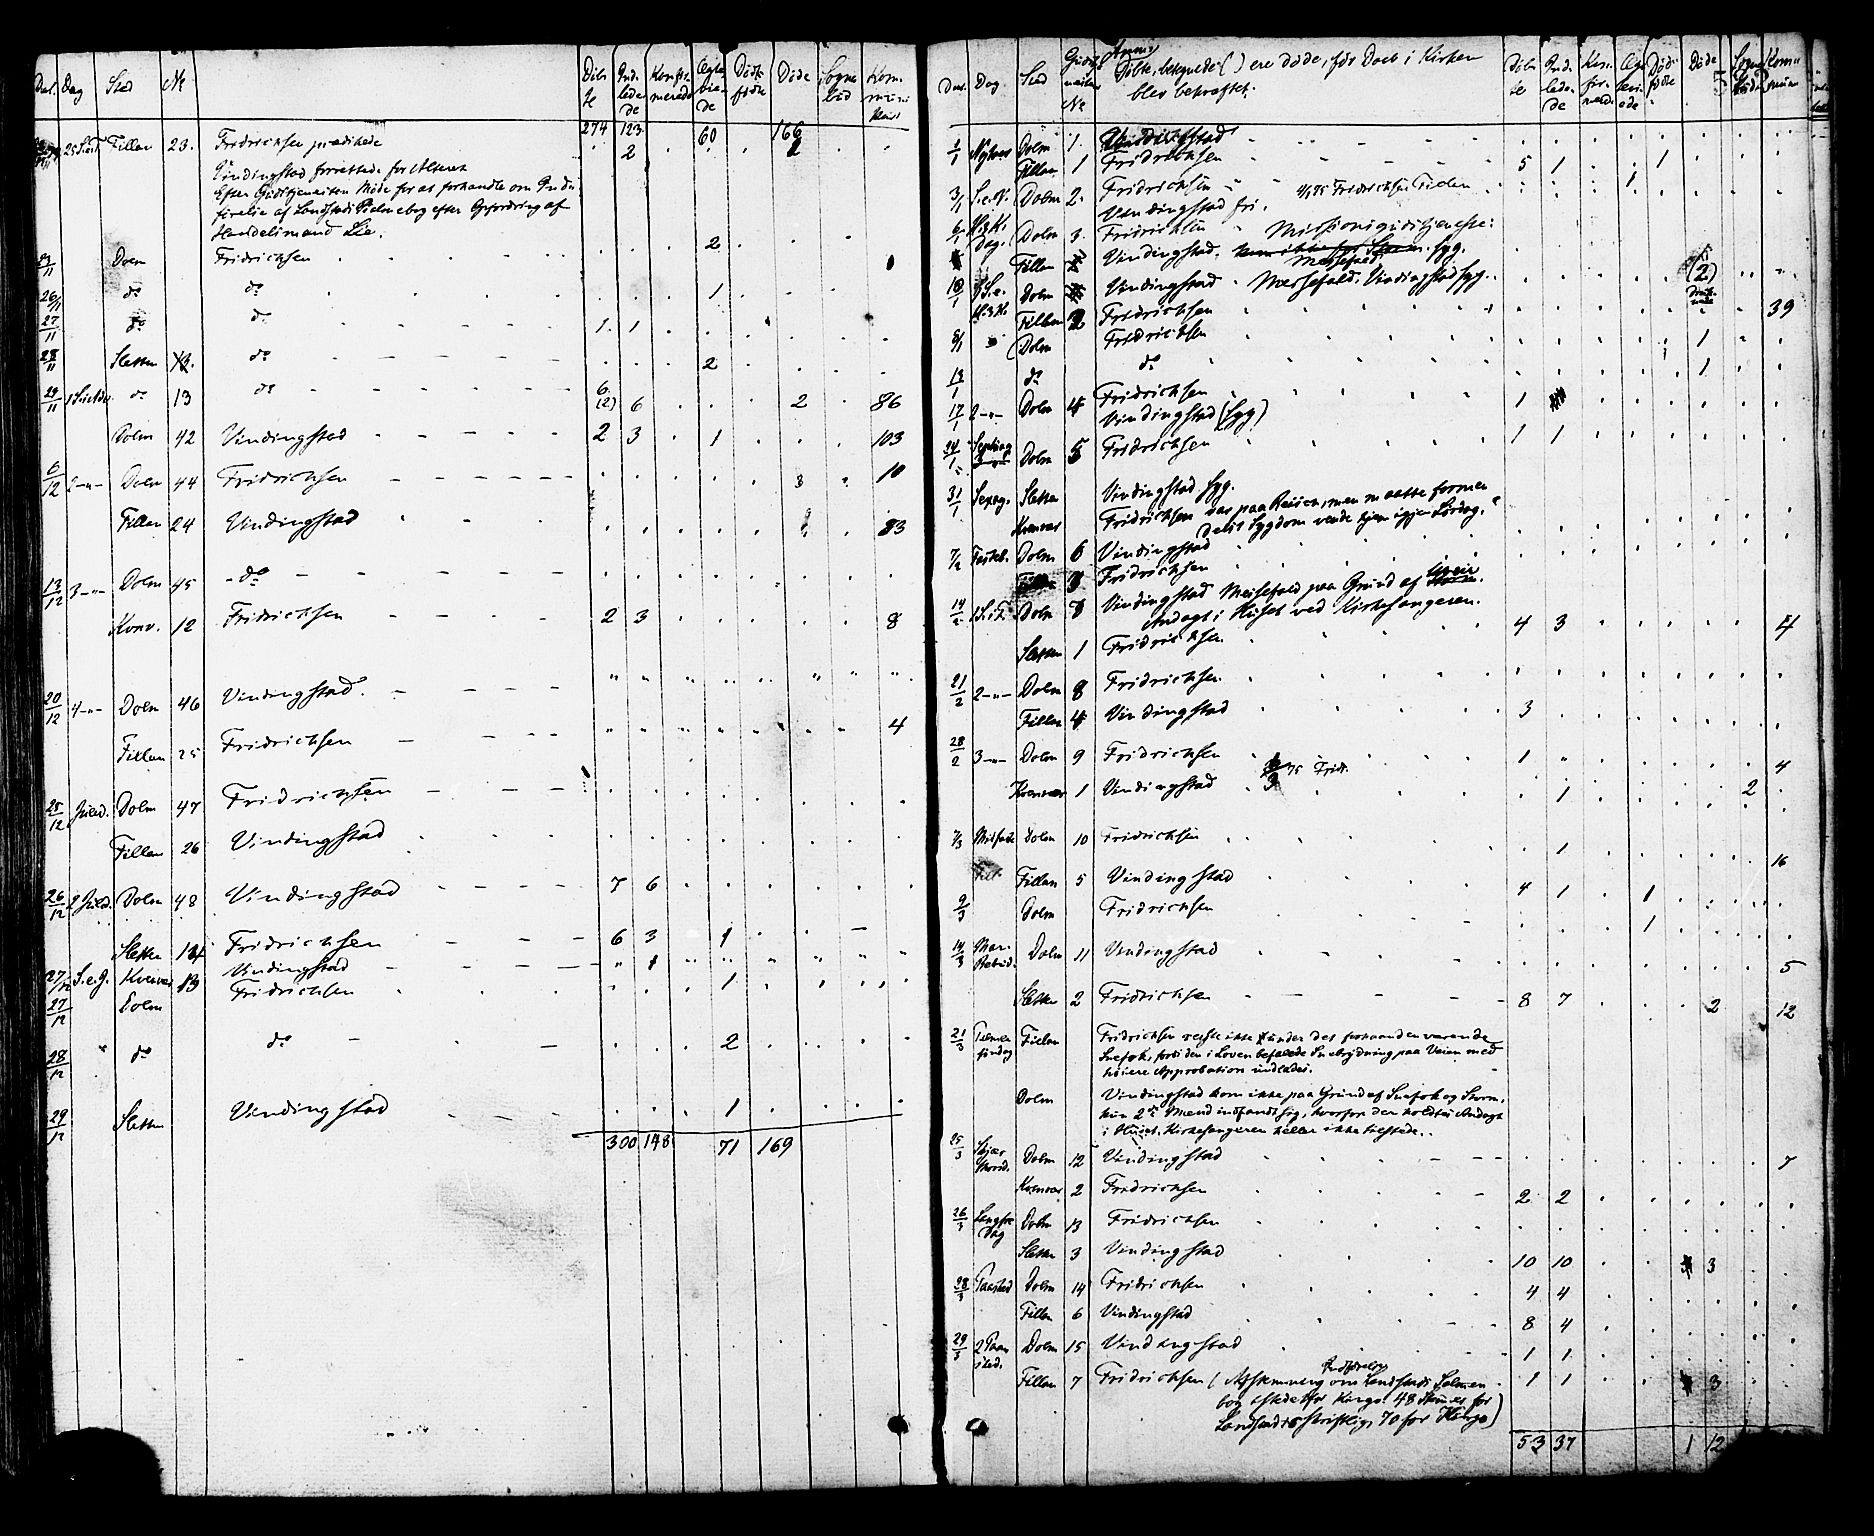 Dat. Dag Sted № Døbte Indledede Konfirmerede Ægteviede Dødfødte Døde Sognebud Kommunikant
274 123 60 166
/11 25 S.e.T. Fillan 23. Fridrichsen prædikede 2
Vindingstad forrettede for Alteret
Efter Gudstjenesten Møde for at forhandle om Indførelse af Landstads Psalmebog efter Opfordring af
Handelsmand Lie.
/11 Dolm Fridrichsen 2
26/11 do do 1
27/11 do do 1. 1
28/11 Sletten do 2
29/11 1 S. i Adv. do 13 do 6 (2) 6 2 86
Dolm 42 Vindingstad 2 3 1 103
6/12 2 -"- Dolm 44 Fridrichsen 3 10
Fillan 24 Vindingstad 83
13/12 3 -"- Dolm 45 - do -
Konv. 12 Fridrichsen 2 3 8
20/12 4 -"- Dolm 46 Vindingstad.
Fillan 25 Fridrichsen 4
25/12 Juled. Dolm 47 Fridrichsen
Fillan 26 Vindingstad
26/12 2 Juled. Dolm 48 Vindingstad 7 6
Sletten 14 Fridrichsen 6 3 1
27/12 S.e.J. Kvenvær 13 Vindingstad " 1
27/12 Dolm Fridrichsen 1
28/12 " do do 2
29/12 Sletten Vindingstad 1
300 148 71 169
Dat. Dag Sted Gudstjenesten № Anm. Døbte, betegnede ( ) ere døde, før Daab i Kirken
blev bekræftet.
Døbte Indledede Konfirmerede Ægteviede Dødfødte Døde Sognebud Kommun
1/1 Nytaar Dolm 1. Vindingstad
Fillan 1 Fridrichsen 5 1 1
3/1 S.e.N. Dolm 2. Fridrichsen 1
Vindingstad fri.
6/1 H.3.K. Dag. Dolm 3 Fridrichsen " Missionsgudstjeneste:
Fillan Vindingstad. kom ikke for Storm. syg.
Messefald
10/1 1 S.e. H.3.K. Dolm Vindingstad Messefald. Vindingstad syg. (2)
Fillan 2 Fridrichsen 39
8/1 Dolm Fridrichsen 1
13/1 do do 1
17/1 2 -"- Dolm 4 Fridrichsen 1
Vindingstad (syg)
24/1 Septuag Dolm 5 Fridrichsen 1 1
31/1 Sexag. Sletten Vindingstad syg.
Kvenvær Fridrichsen var paa Reisen, men maatte formedelst Sygdom vende hjem igjen Lørdag.
7/2 Fastel. Dolm 6 Vindingstad
Fillan 3 Fridrichsen
14/2 1 S. i F. Dolm 7 Vindingstad Messefald paa Grund af Storm.
Andagt i Huset ved Kirkesangeren.
Sletten 1 Fridrichsen 4 3 4
21/2 2 -"- Dolm 8 Fridrichsen
Fillan 4 Vindingstad 3
28/2 3 -"- Dolm 9 Fridrichsen 1 " 4
Kvenvær 1 Vindingstad 1 2
7/3 Midfaste Dolm 10 Fridrichsen 1 16
Fillan 5 Vindingstad 4 1 1
9/3 Dolm Fridrichsen 1
14/3 Mar. Bebud. Dolm 11 Vindingstad 5
Sletten 2 Fridrichsen 8 7 2 12
21/3 Palmesøndag Fillan Fridrichsen reiste ikke under det forhaandenværende
Snefok, fordi den i Loven befalede Snebrydning paa Veien med
høiere Approbation undlades.
Dolm Vindingstad kom ikke paa Grund af Snefok og Storm.
kun 2de Mænd indfandt sig, hvorfor der holdtes Andagt
i Huset. Kirkesangeren heller ikke tilstede..
25/3 Skjærthorsd. Dolm 12 Vindingstad 7
Kvenvær 2 Fridrichsen 2 2
26/3 Langfredag Dolm 13 Fridrichsen
Sletten 3 Vindingstad 10 10 3
28/3 Paasked Dolm 14 Fridrichsen 4 4
Fillan 6 Vindingstad 8 4
29/3 2 Paasked. Dolm 15 Vindingstad 1 1
Fillan 7 Fridrichsen (Afstemning om Indførelse Landstads Salmebog istedetfor Kingo. 48 Stemmer for
Landstads skriftlig, 70 for Kingo) 1 1 3
53 37 1 12